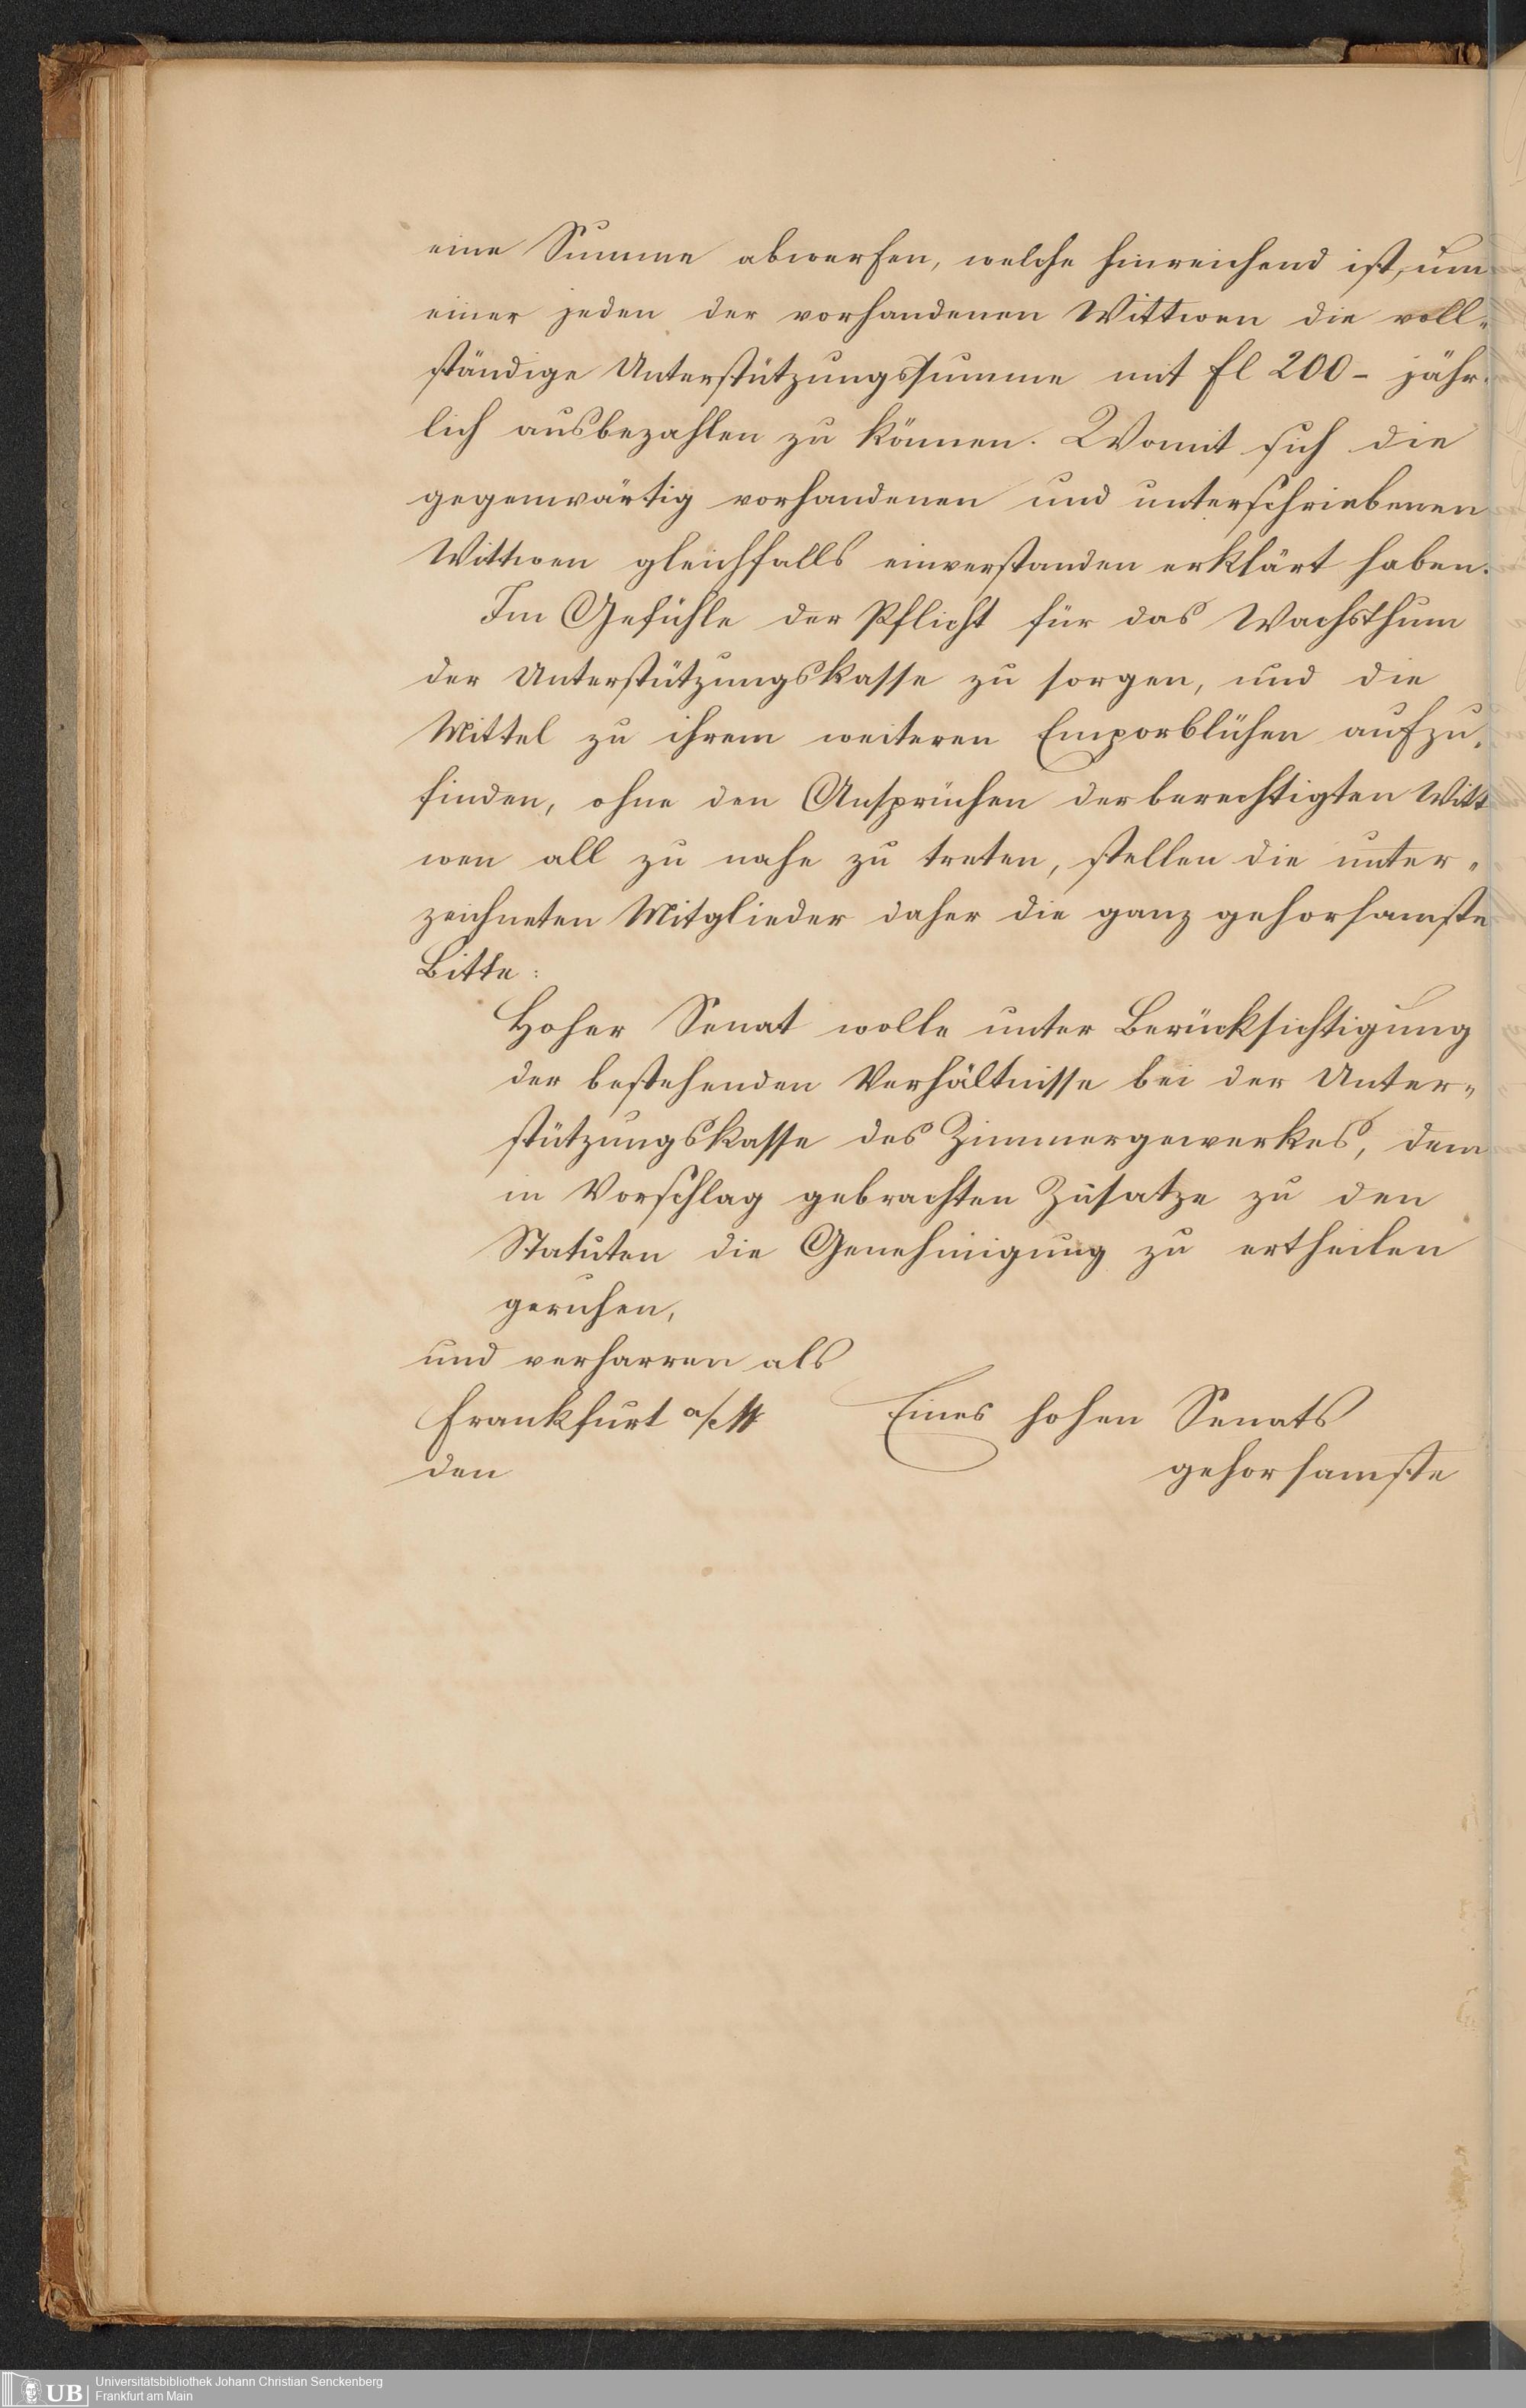 eine Summe abwerfen, welche hinreichend ist, um
einer jeden der vorhandenen Wittwen die voll-
ständige Unterstützungssumme mit fl 200 - jähr-
lich ausbezahlen zu können. Womit sich die
gegenwärtig vorhandenen und unterschriebenen
Wittwen gleichfalls einverstanden erklärt haben.
Im Gefühle der Pflicht für das Wachsthum
der Unterstützungskasse zu sorgen, und die
Mittel zu ihrem weiteren Emporblühen aufzu-
finden, ohne den Ansprüchen der berechtigten Witt
wen all zu nahe zu treten, stellen die unter-
zeichneten Mitglieder daher die ganz gehorsamste
Bitte:
Hoher Senat wolle unter Berücksichtigung
der bestehenden Verhältnisse bei der Unter-
stützungskasse des Zimmergewerkes, dem
in Vorschlag gebrachten Zusatze zu den
Statuten die Genehmigung zu ertheilen
geruhen,
und verharren als
Frankfurt a/M Eines hohen Senats
den gehorsamste
UB Universitätsbibliothek Johann Christian Senckenberg
Frankfurt am Main